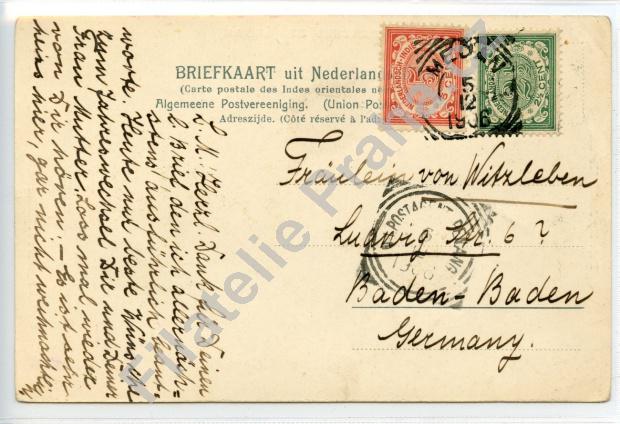 BRIEFKAART uit Nederland
(Carte postale des Indes orientales né
Algemeene Postvereeniging. (Union Pos
Adreszijde. (Côté réservé à l'ad
MEDAN
5
12
1906
2½ CENT
POSTAGENT PENANG
Fräulein von Witzleben
Ludwig Str. 6?
Baden-Baden
Germany.
L. M. Herzl. Dank für Deinen
l. Brief den ich aller näch-
stens ausführlich beant-
worte. Heute nur beste Wünsche
zum Jahreswechsel Dir und Deiner
Frau Mutter. Lass mal wieder
von Dir hören! - Es ist sehr
heiss hier, gar nicht weihnachtl.
Filatelie